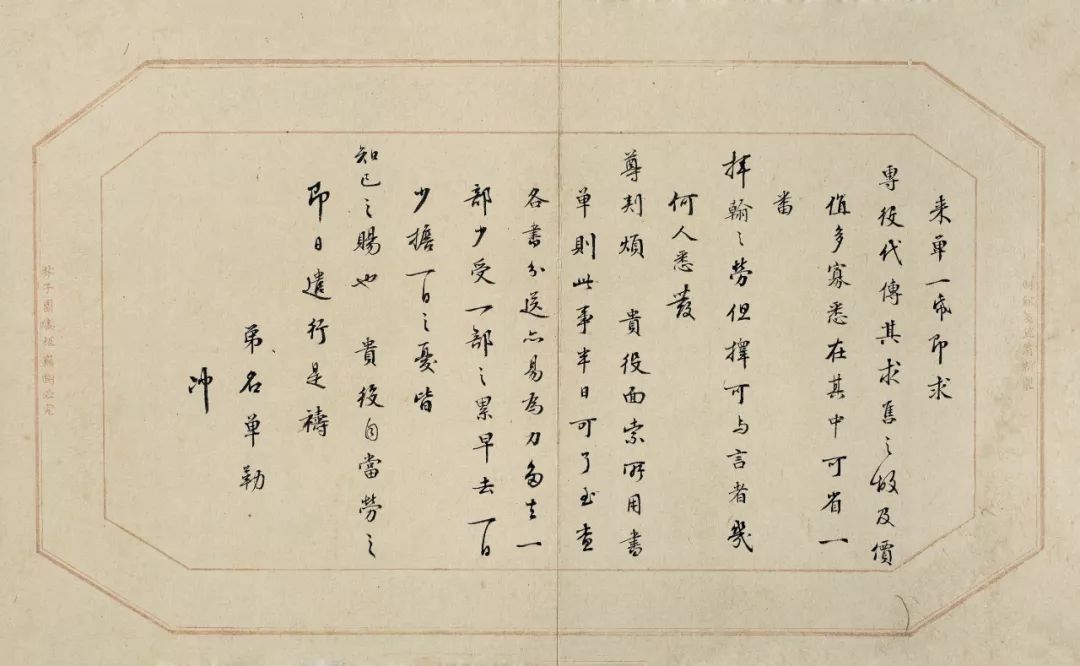 来單一帋即求
專役代傳其求售之故及價
值多寡悉在其中可省一
番
揮翰之勞但擇可与言者幾
何人悉發
尊刺煩 貴役面索所用書
單則此事半日可了至查
各書分送亦易為力多去一
部少受一部之累早去一日
少擔一日之憂皆
知己之賜也 貴役自當勞之
即日遣行是禱
弟名單勒
沖
芥子園 翻刻必究